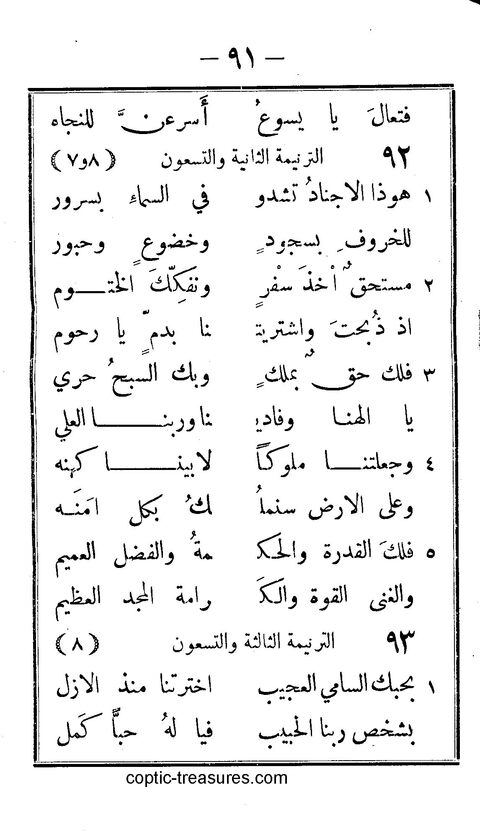 — ٩١ —
فتعالَ يا يسوعُ أَسرعنَّ للنجاه
٩٢ الترنيمة الثانية والتسعون (٨و٧)
١ هوذا الاجنادُ تشدو في السماءِ بسرور
للخروفِ بسجودٍ وخضوعٍ وحبور
٢ مستحقٌ أخذَ سفْرٍ وتفكِّكَ الختـوم
اذ ذُبحتَ واشتريتَنا بدمٍّ يا رحوم
٣ فلك حقٌ بملكٍ وبك السبحُ حري
يا الهنا وفادينا وربنـا العلي
٤ وجعلتنـا ملوكاً لابينـا كهنه
وعلى الارض سنملُكُ بكل امَنَه
٥ فلكَ القدرة والحكمةُ والفضل العميم
والغنى القوة والكَرامة المجد العظيم
٩٣ الترنيمة الثالثة والتسعون (٨)
١ بحبك السامي العجيب اخترتنا منذ الازل
بشخص ربنا الحبيب فيا لهُ حبًّا كَمل
coptic-treasures.com